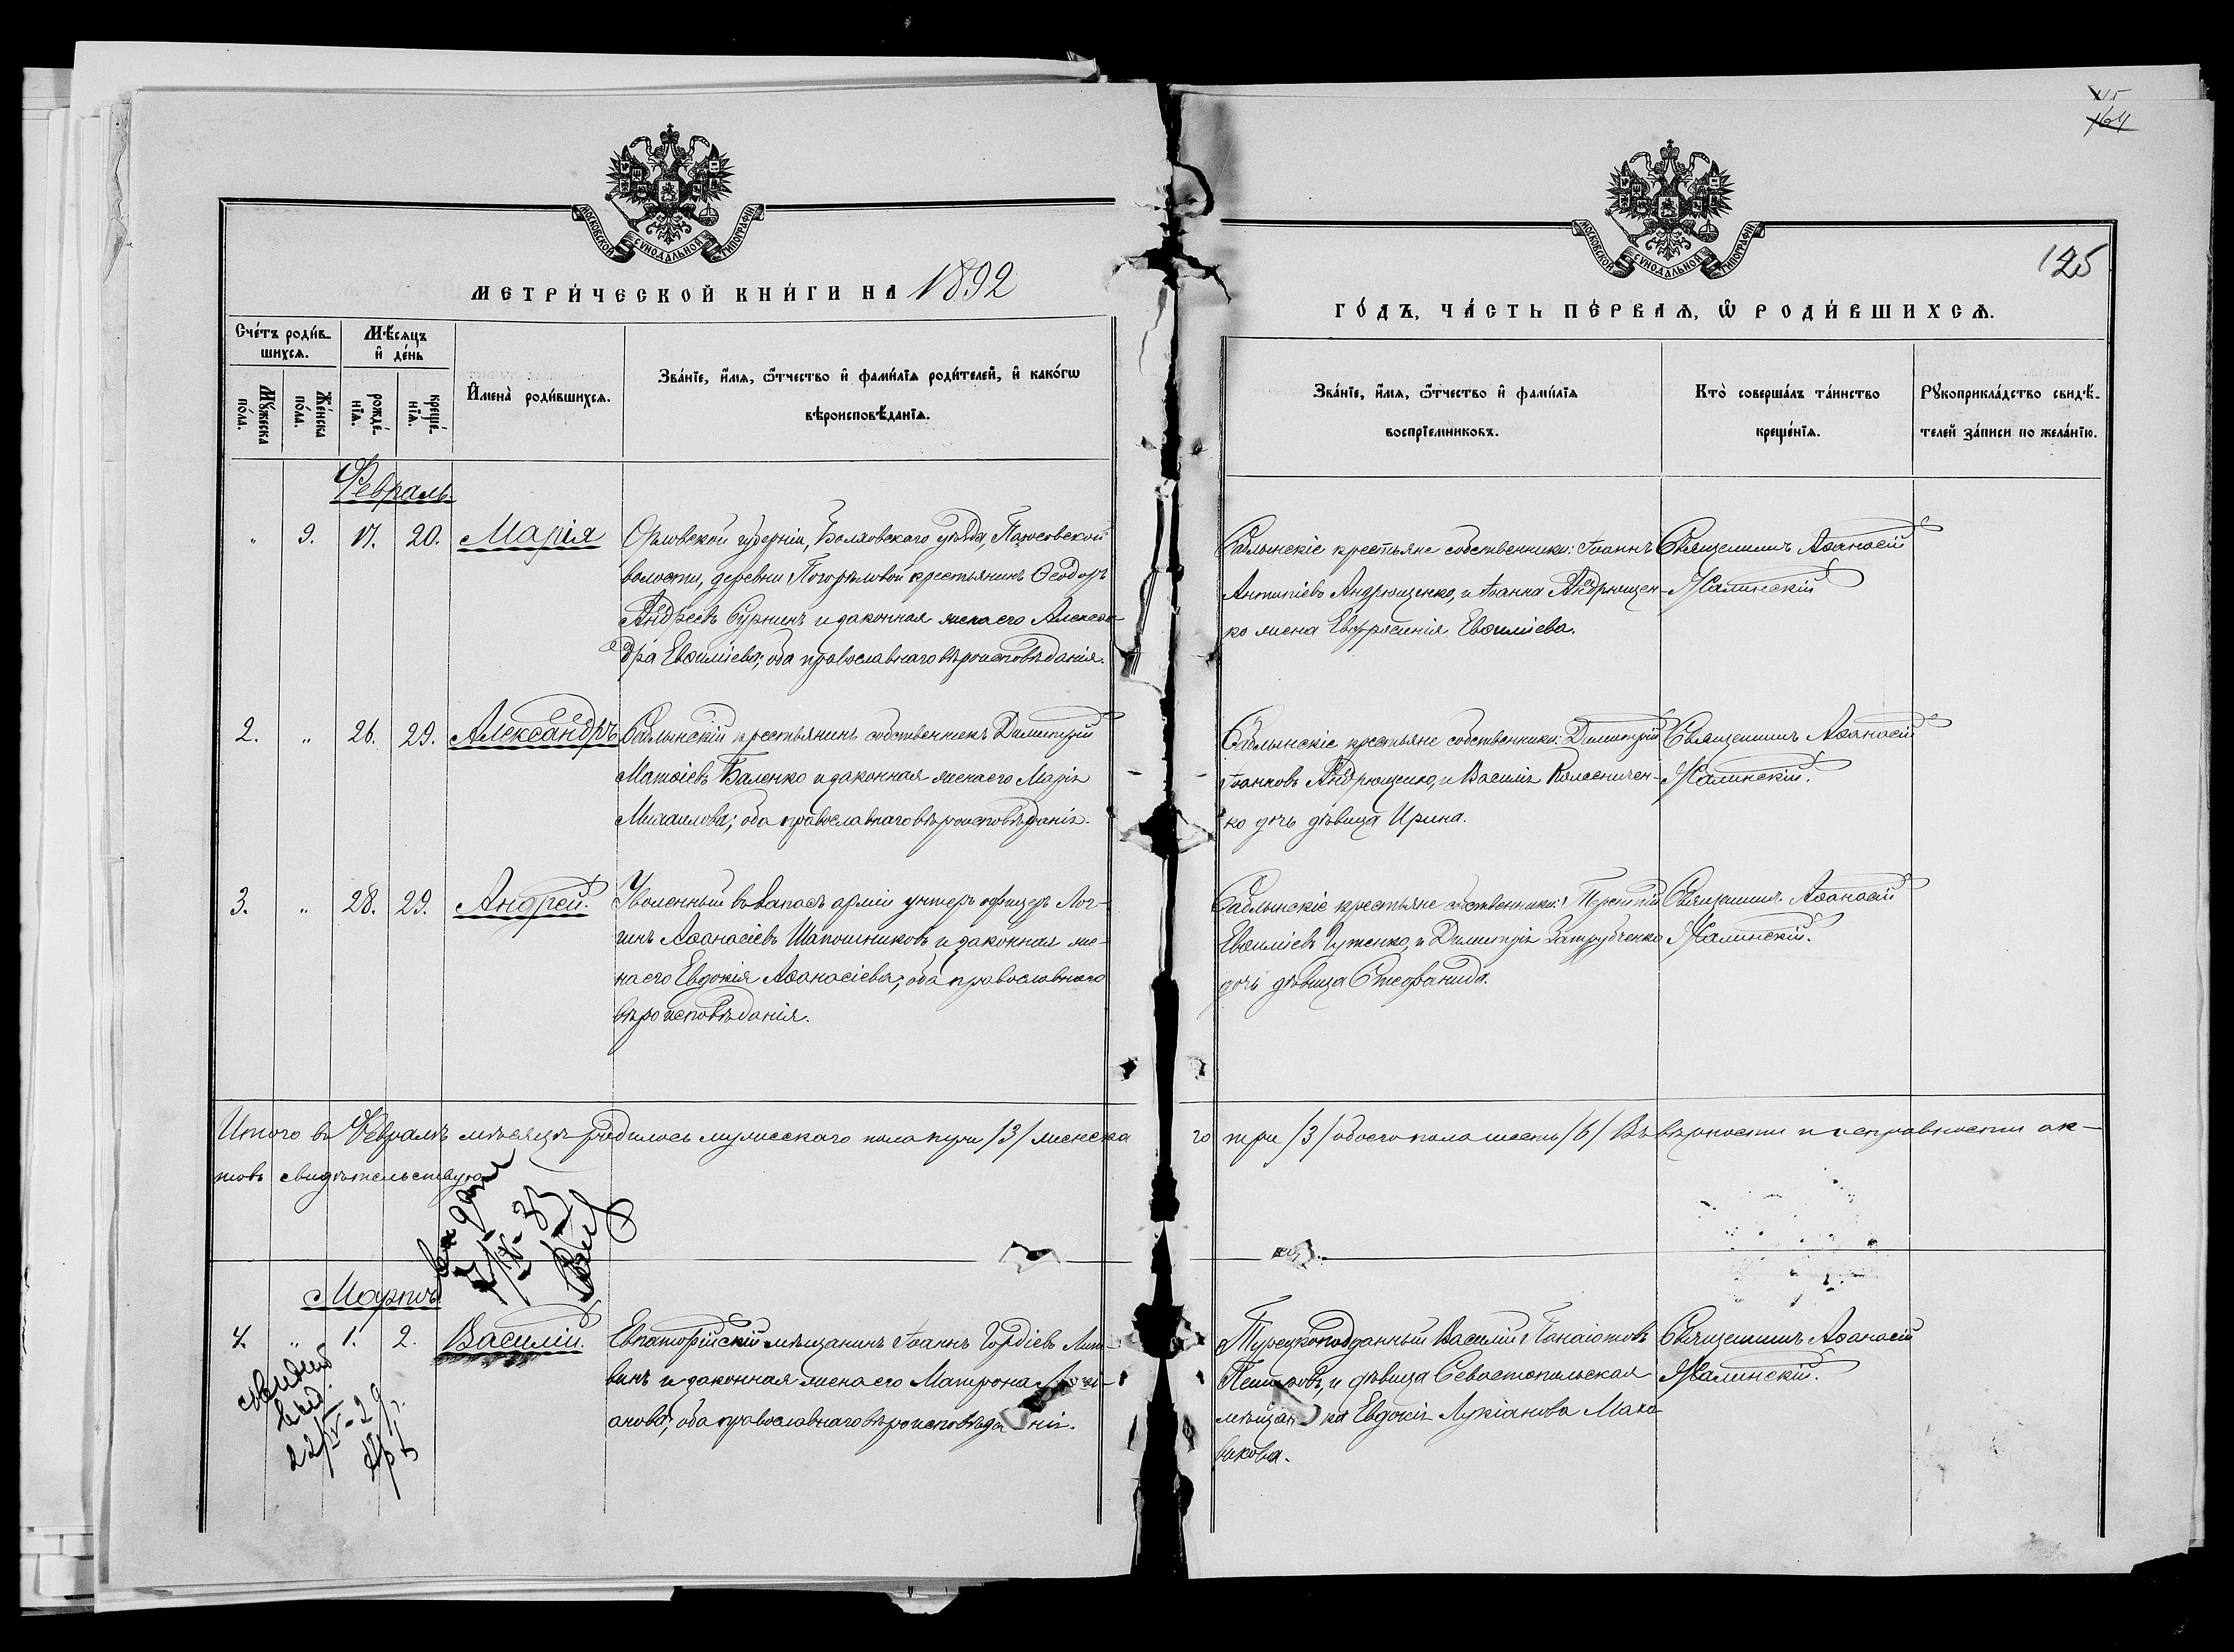 125
МОСКОВСКОЙ СУНОДАЛЬНОЙ ТИПОГРАФІИ
МОСКОВСКОЙ СУНОДАЛЬНОЙ ТИПОГРАФІИ
МЕТРИ́ЧЕСКОЙ КНИ́ГИ НА 1892
ГО́ДЪ, ЧА́СТЬ ПЕ́РВАѦ, Ѡ҆ РОДИ́ВШИХСѦ.
Сче́тъ роди́в-
шихсѧ.
Мꙋ́жеска
по́ла.
Же́нска
по́ла.
Мѣ́сѧцъ
и҆ де́нь
рожде́-
нїѧ.
креще́-
нїѧ.
И҆мена̀ роди́вшихсѧ.
Зва́нїе, и҆́мѧ, ѻ҆́тчество и҆ фами́лїѧ роди́телей, и҆ како́гѡ
вѣроисповѣ́данїѧ.
Зва́нїе, и҆́мѧ, ѻ҆́тчество и҆ фами́лїѧ
воспрїемниковъ.
Кто̀ соверша́лъ та́инство
креще́нїѧ.
Рꙋкоприкла́дство свидѣ́-
телей за́писи по жела́нїю.
Февраль
" 9. 17. 20. Марія
Орловской губерніи, Болховского уѣзда,
волости, деревни Погорѣловой крестьянинъ Ѳеодоръ
Андреевъ Суринъ и законная жена его Алексан-
дра Евѳиміева; оба православнаго вѣроисповѣданія.
Саблынскіе крестьяне собственники: Іоаннъ
Антипіевъ Андрющенко, и Іоанна Андрющен-
ко жена Евфросинія Евѳиміева.
Священникъ Аѳанасій
Жалинскій
2. " 26. 29. Александръ
Саблынскій крестьянинъ собственникъ Димитрій
Матѳіевъ Баленко и законная жена его Марія
Михаилова; оба православнаго вѣроисповѣданія.
Саблынскіе крестьяне собственники: Димитрій
Іоанновъ Андрющенко, и Василія Колесничен-
ко дочь дѣвица Ирина.
Священникъ Аѳанасій
Жалинскій.
3. " 28. 29. Андрей.
Уволенный въ запасъ арміи унтеръ офицеръ Лог-
гинъ Аѳанасіевъ Шапошниковъ и законная же-
на его Евдокія Аѳанасіева; оба православнаго
вѣроисповѣданія.
Саблынскіе крестьяне собственники: Терентій
Евѳиміевъ Гуженко, и Димитрія Затрубченко
дочь дѣвица Стефанида.
Священникъ Аѳанасій
Жалинскій.
Итого въ Февралѣ мѣсяцѣ родилось мужескаго пола три /3/ женска
го три /3/ обоего пола шесть /6/ Въ вѣрности и исправности ак-
товъ свидѣтельствую
Мартъ
4. " 1. 2. Василій.
Евпаторійскій мѣщанинъ Іоаннъ Гордіевъ Лит-
винъ и законная жена его Матрона
анова; оба православнаго вѣроисповѣданія.
Турецкоподданный Василій Панаіотовъ
и дѣвица Севастопольская
мѣщанка Евдокія Лукіанова Мако-
викова.
Священникъ Аѳанасій
Жалинскій.